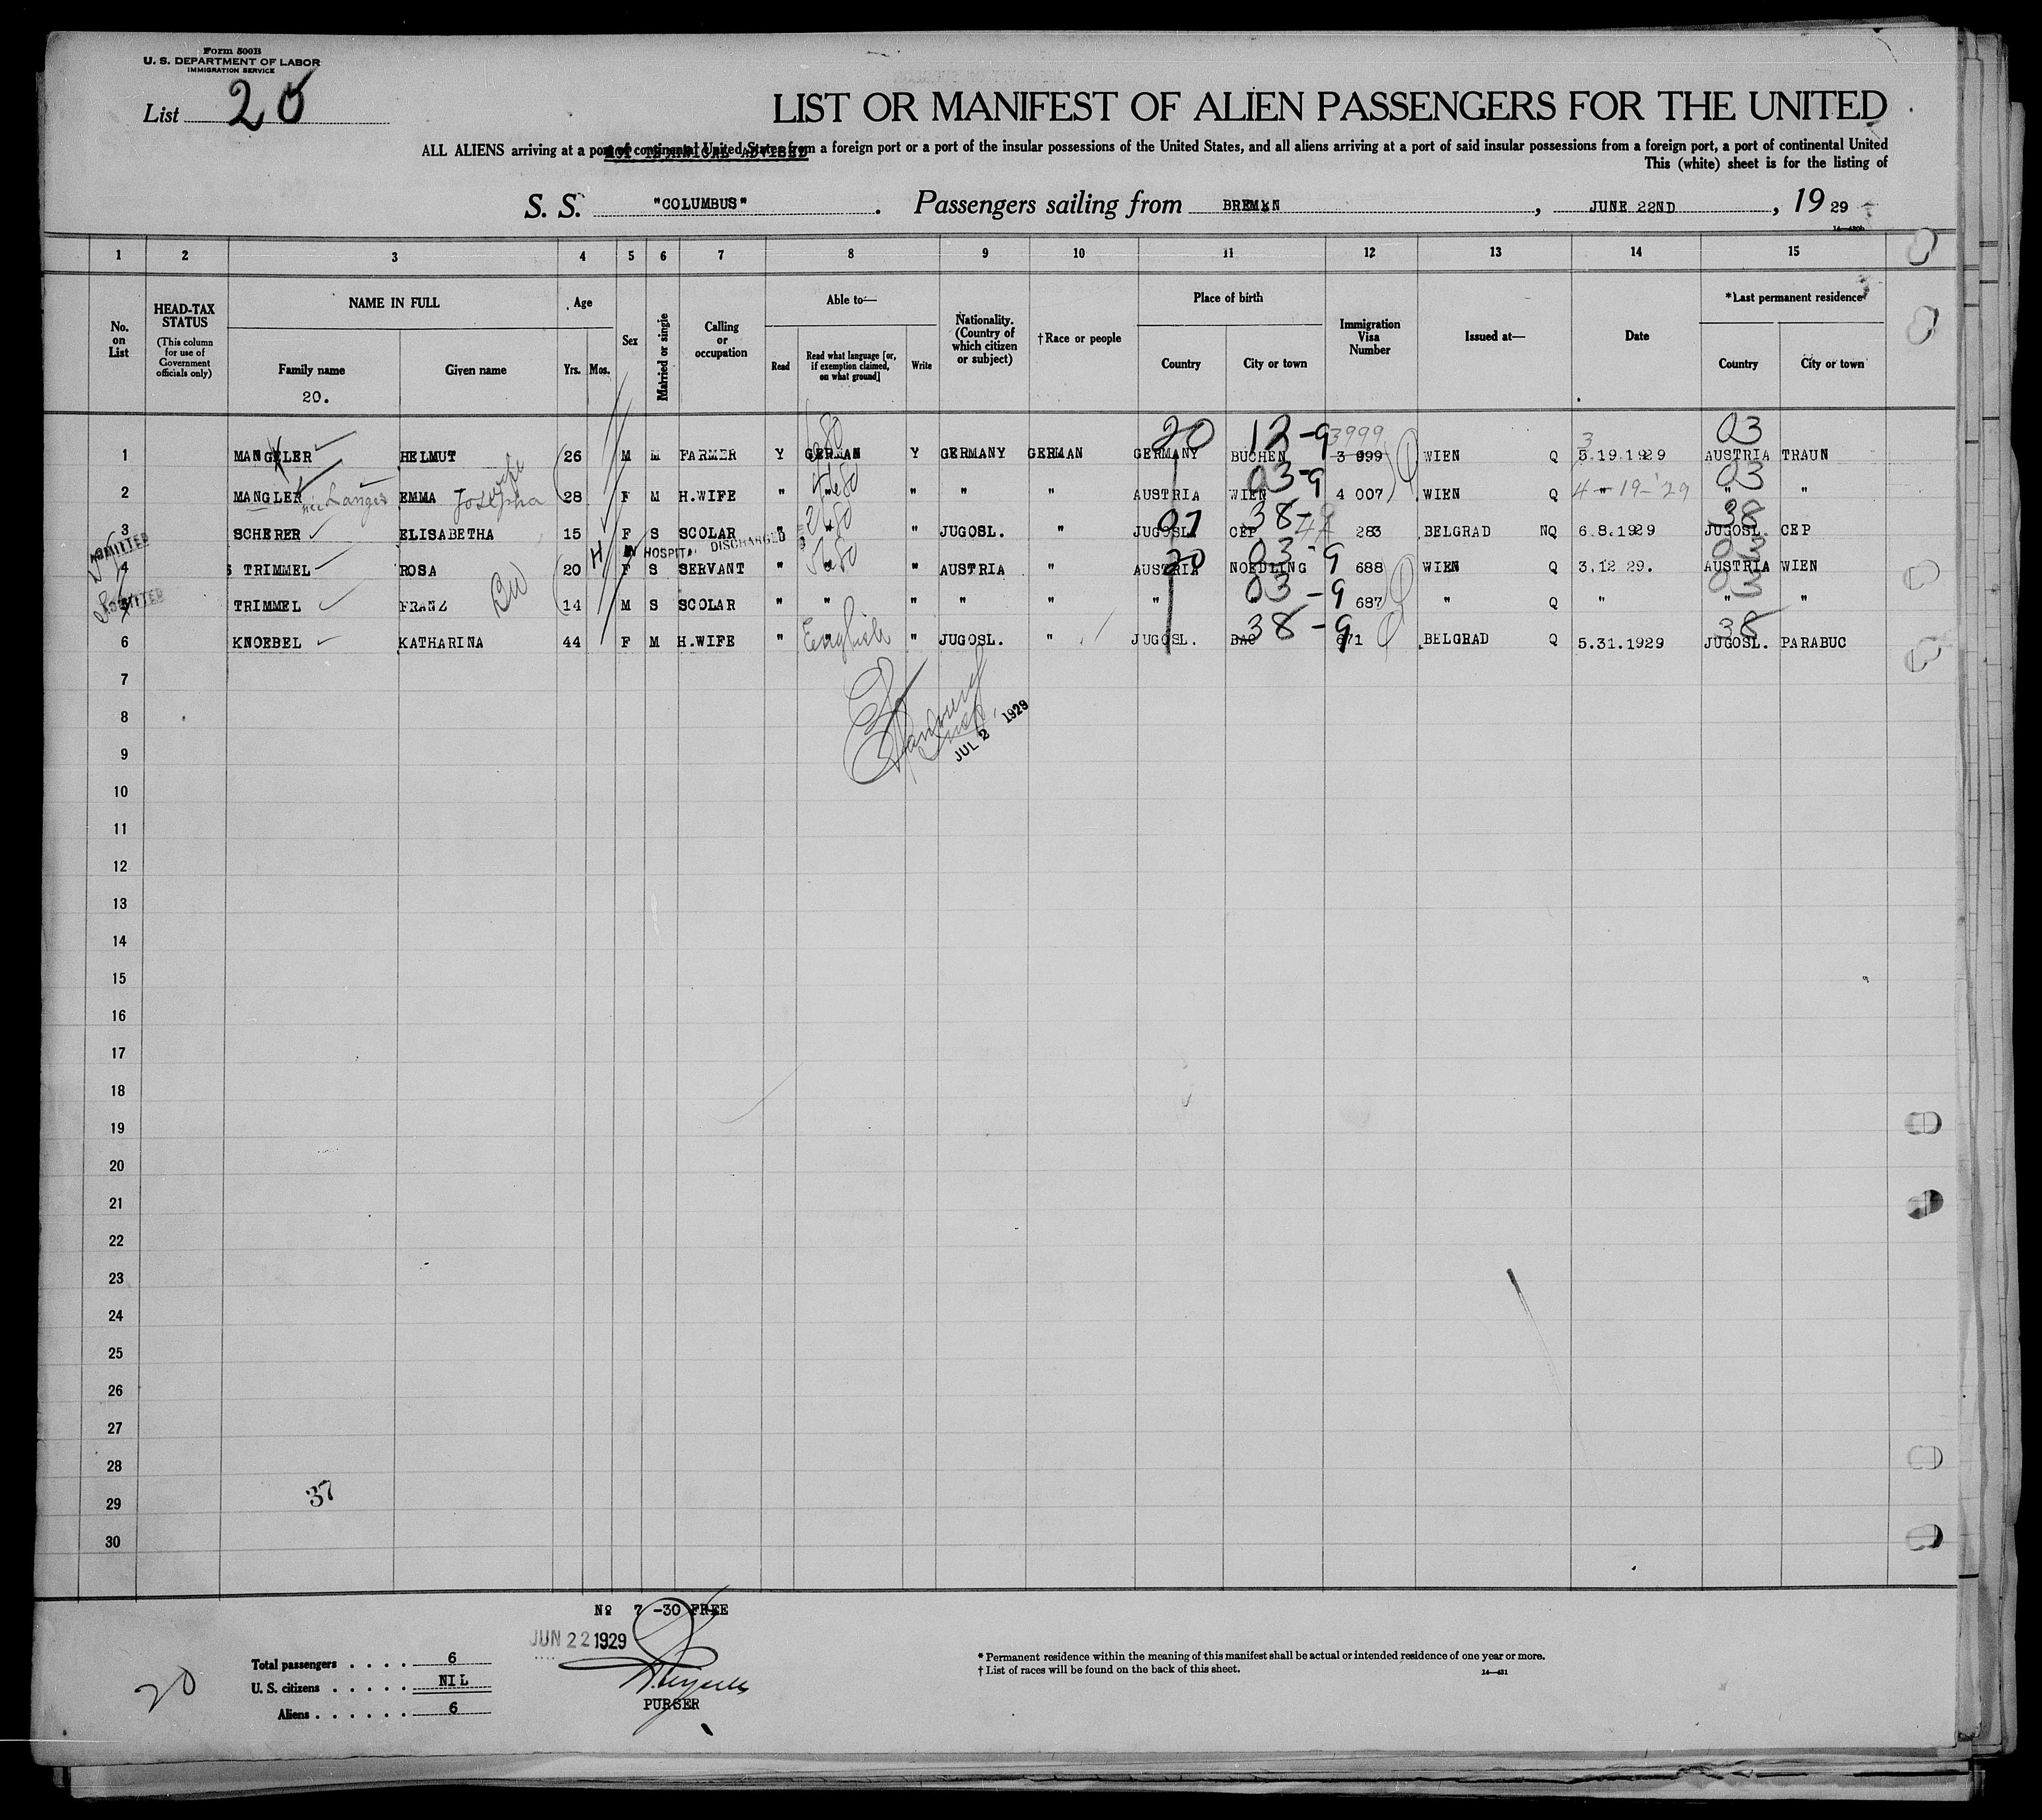 Form 500B
U. S. DEPARTMENT OF LABOR
IMMIGRATION SERVICE
List 20
LIST OR MANIFEST OF ALIEN PASSENGERS FOR THE UNITED
ALL ALIENS arriving at a port of continental United States from a foreign port or a port of the insular possessions of the United States, and all aliens arriving at a port of said insular possessions from a foreign port, a port of continental United
This (white) sheet is for the listing of
S. S. "COLUMBUS" . Passengers sailing from BREMEN , JUNE 22ND , 19 29
1 2 3 4 5 6 7 8 9 10 11 12 13 14 15
No. on List
HEAD-TAX STATUS (This column for use of Government officials only)
NAME IN FULL
Family name
Given name
20.
Age
Yrs. Mos.
Sex
Married or single
Calling or occupation
Able to—
Read
Read what language [or, if exemption claimed, on what ground]
Write
Nationality. (Country of which citizen or subject)
†Race or people
Place of birth
Country
City or town
Immigration Visa Number
Issued at—
Date
*Last permanent residence
Country
City or town
20 12-9 3999 3 03
1 MANGELER HELMUT 26 M M FARMER Y GERMAN Y GERMANY GERMAN GERMANY BUCHEN 3 999 WIEN Q 5.19.1929 AUSTRIA TRAUN
03-9 03
2 MANGLER née Langer EMMA Josepha wife 28 F M H.WIFE " " " " " AUSTRIA WIEN 4 007 WIEN Q " 4-19-'29 " "
07 38-9 38
3 SCHERER ELISABETHA 15 F S SCOLAR " " " JUGOSL. " JUGOSL. CEP 283 BELGRAD NQ 6.8.1929 JUGOSL. CEP
ADMITTED H IN HOSPITAL DISCHARGED 20 03-9 03
4 S TRIMMEL ROSA 20 F S SERVANT " " " AUSTRIA " AUSTRIA NOEDLING 688 WIEN Q 3.12 29. AUSTRIA WIEN
ADMITTED 03-9 03
5 TRIMMEL FRANZ 14 M S SCOLAR " " " " " " " 687 " Q " " "
38-9 38
6 KNOEBEL KATHARINA 44 F M H.WIFE " " English " JUGOSL. " JUGOSL. BAC 671 BELGRAD Q 5.31.1929 JUGOSL. PARABUC
7
8
JUL 2 1929
9
10
11
12
13
14
15
16
17
18
19
20
21
22
23
24
25
26
27
28
29
37
30
No 7 -30 FREE
JUN 22 1929
Total passengers . . . . 6
U. S. citizens . . . . . NIL
Aliens . . . . . . 6
20
PURSER
* Permanent residence within the meaning of this manifest shall be actual or intended residence of one year or more.
† List of races will be found on the back of this sheet.
14—431